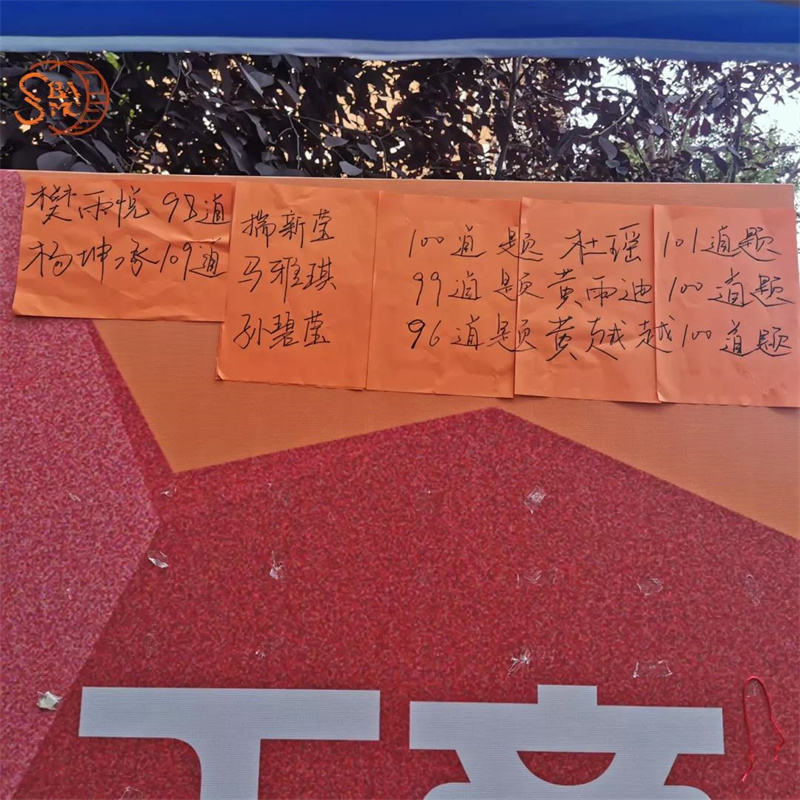 SBA
樊雨悦 98道
杨坤承 109道
揣新莹 100道题 杜瑶 101道题
马雅琪 99道题 黄雨迪 100道题
孙碧莹 96道题 黄越越 100道题
工商